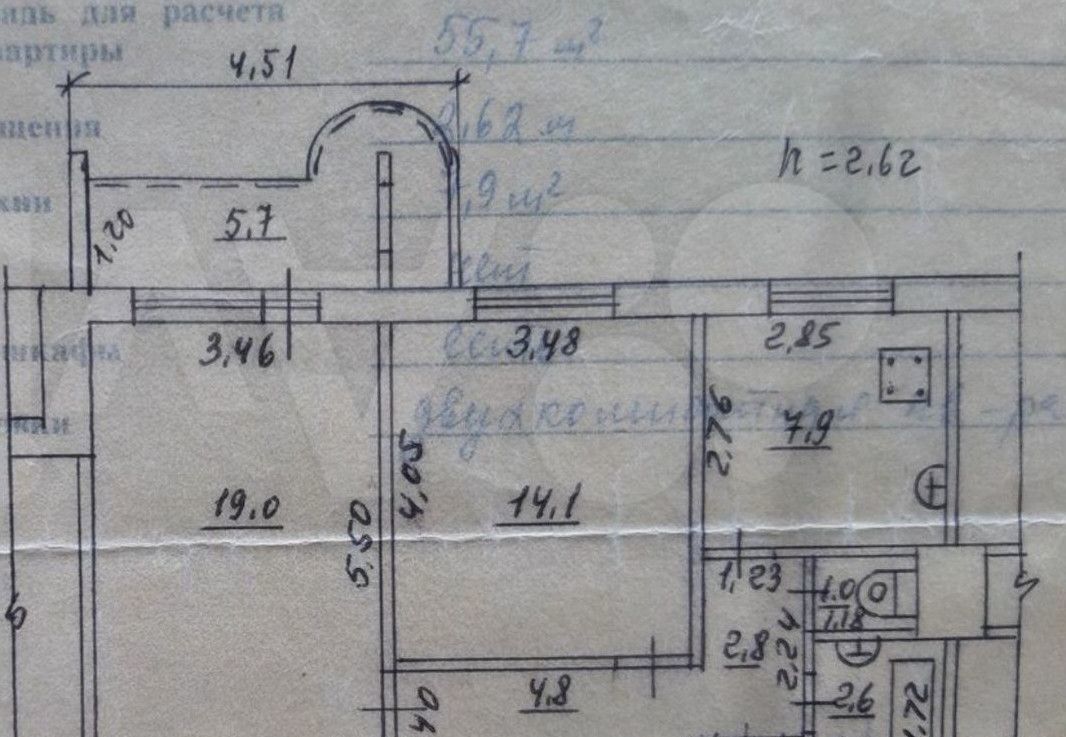 адь для расчета
вартиры 55,7 м²
4,51
щения 2,62 м
h = 2,62
хни 7,9 м²
1,20
5,7
3,46
3,48
2,85
2,76
7,9
4,05
19.0
14,1
5.50
1,23
1.0
1,18
2,8
2,24
4,8
40
2,6
1,72